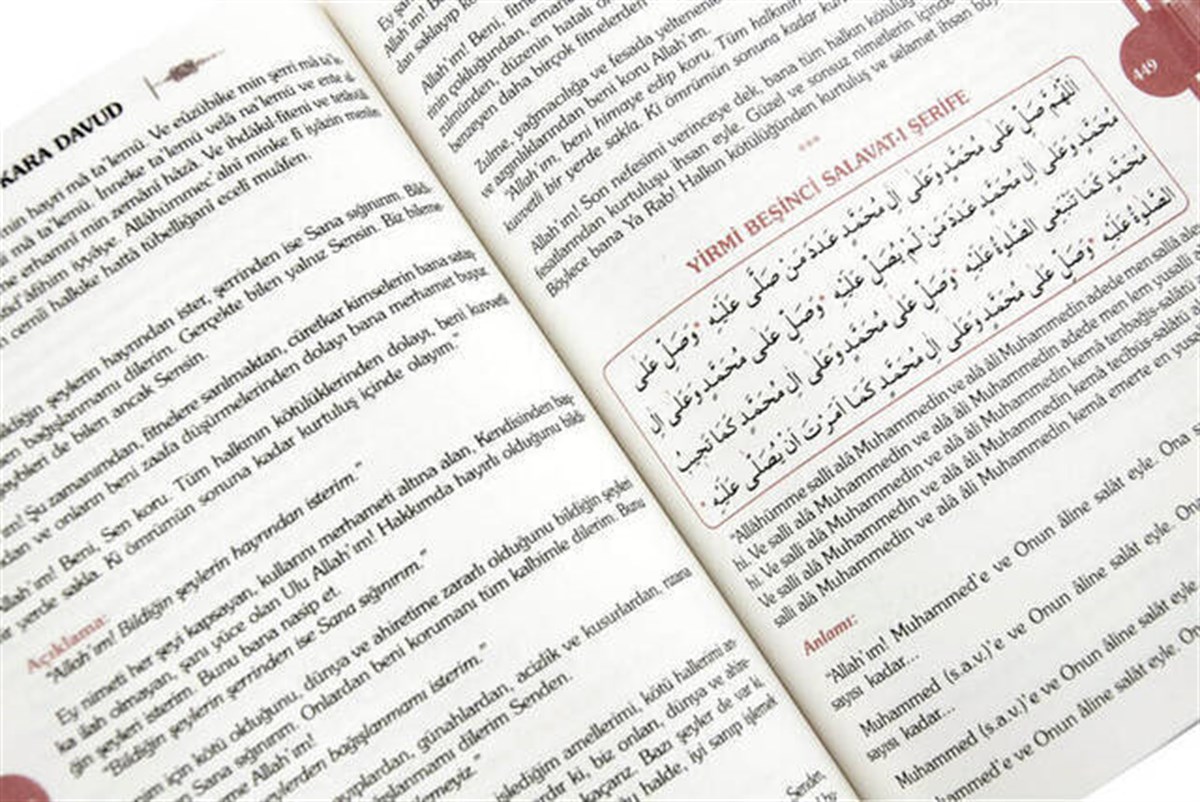 KARA DAVUD
hayri mâ ta'lemü. Ve eûzübike min şerri mâ ta'le-
mâ ta'lemü. İnneke ta'lemü velâ na'lemü ve ente al-
erhamnî min zemânî hâzâ. Ve ihdâkil fiteni ve tetâvüli
iyyâye. Allâhümmec'alnî minke fî iyâzin menîın
cemîi halkıke hattâ tübelliğanî ecelî muâfen.
bildiğin şeylerin hayrından ister, şerrinden ise Sana sığınırım. Bildi-
bağışlanmamı dilerim. Gerçekte bilen yalnız Sensin. Biz bileme-
gaybleri de bilen ancak Sensin.
Şu zamanımdan, fitnelere sarılmaktan, cüretkar kimselerin bana sataş-
ve onların beni zaafa düşürmelerinden dolayı bana merhamet buyur.
Allah'ım! Beni, Sen koru. Tüm halkının kötülüklerinden dolayı, beni kuvvetli
bir yerde sakla. Ki ömrümün sonuna kadar kurtuluş içinde olayım."
Açıklama:
"Allah'ım! Bildiğin şeylerin hayrından isterim."
Ey nimeti her şeyi kapsayan, kullarını merhameti altına alan, Kendisinden baş-
ka ilah olmayan, şanı yüce olan Ulu Allah'ım! Hakkımda hayırlı olduğunu bildi-
ğin şeyleri isterim. Bunu bana nasip et.
"Bildiğin şeylerin şerrinden ise Sana sığınırım."
için kötü olduğunu, dünya ve ahiretime zararlı olduğunu bildiğin şeyler
Sana sığınırım. Onlardan beni korumanı tüm kalbimle dilerim. Bunu
Allah'ım!
bağışlanmamı isterim."
günahlardan, acizlik ve kusurlardan, rızana
dilerim Senden.
işlediğim amellerimi, kötü hallerimi an-
ki, biz onları, dünya ve ahire-
kaçarız. Bazı şeyler de var ki
halde, iyi sanıp işlemek
Senden,
449
Allah'ım! Beni, fitne
sinin çokluğundan, emane
zulmünden, düzenin hatalı
benzeyen daha birçok fitnelerden
Zulme, yağmacılığa ve fesada yeltenenle
ve azgınlıklarından beni koru Allah'ım.
"Allah'ım, beni himaye edip koru. Tüm halkının
kuvvetli bir yerde sakla. Ki ömrümün sonuna kadar kur
Allah'ım! Son nefesimi verinceye dek, bana tüm halkın kötülüğ
fesatlarından kurtuluşu ihsan eyle. Güzel ve sonsuz nimetlerin içinde
Böylece bana Ya Rab! Halkın kötülüğünden kurtuluş ve selamet ihsan buy
***
YİRMİ BEŞİNCİ SALAVAT-I ŞERİFE
اَللّٰهُمَّ صَلِّ عَلٰى مُحَمَّدٍ وَعَلٰى اٰلِ مُحَمَّدٍ عَدَدَ مَنْ صَلّٰى عَلَيْهِ * وَصَلِّ عَلٰى
مُحَمَّدٍ وَعَلٰى اٰلِ مُحَمَّدٍ عَدَدَ مَنْ لَمْ يُصَلِّ عَلَيْهِ * وَصَلِّ عَلٰى مُحَمَّدٍ وَعَلٰى اٰلِ
مُحَمَّدٍ كَمَا تَنْبَغِى الصَّلٰوةُ عَلَيْهِ * وَصَلِّ عَلٰى مُحَمَّدٍ وَعَلٰى اٰلِ مُحَمَّدٍ كَمَا تَجِبُ
الصَّلٰوةُ عَلَيْهِ * وَصَلِّ عَلٰى مُحَمَّدٍ وَعَلٰى اٰلِ مُحَمَّدٍ كَمَا اَمَرْتَ اَنْ يُصَلّٰى عَلَيْهِ *
"Allâhümme salli alâ Muhammedin ve alâ âli Muhammedin adede men sallâ aley
hi. Ve salli alâ Muhammedin ve alâ âli Muhammedin adede men lem yusalli
hi. Ve salli alâ Muhammedin ve alâ âli Muhammedin kemâ tenbağis-salâtü
Ve salli alâ Muhammedin ve alâ âli Muhammedin kemâ tecibüs-salâtü
salli alâ Muhammedin ve alâ âli Muhammedin kemâ emerte en yusa
Anlamı:
"Allah'ım! Muhammed'e ve Onun âline salât eyle. Ona s
sayısı kadar...
Muhammed (s.a.v.)'e ve Onun âline salât eyle. Ona
sayısı kadar...
Muhammed (s.a.v.)'e ve Onun âline salât eyle
ve Onun âline salât eyle. O